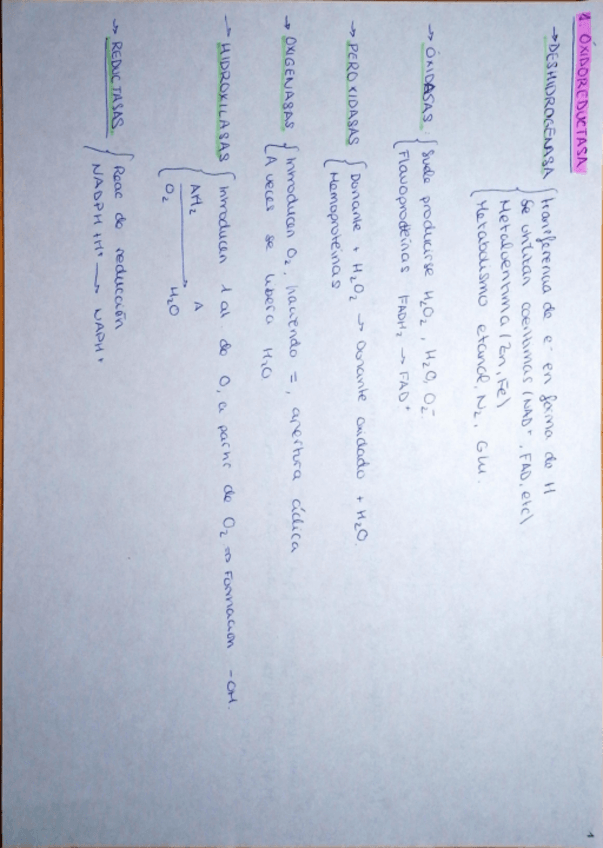 1. ÓXIDOREDUCTASA
→ DESHIDROGENASA { transferencia de e⁻ en forma de H
Se utilizan coenzimas (NAD⁺, FAD, etc)
Metaloenzima (Zn, Fe)
Metabolismo etanol, N₂, Glu.
→ ÓXIDASAS { Suele producirse H₂O₂, H₂O, O₂⁻
Flavoproteínas FADH₂ → FAD⁺
→ PEROXIDASAS { Donante + H₂O₂ → Donante oxidado + H₂O.
Hemoproteínas
→ OXIGENASAS { Introducen O₂, haciendo =, apertura cíclica
A veces se libera H₂O
→ HIDROXILASAS { Introducen 1 at de O, a partir de O₂ ⇒ Formación -OH.
AH₂ → A
O₂ H₂O
→ REDUCTASAS { Reac de reducción
NADPH + H⁺ → NAPH⁺
1